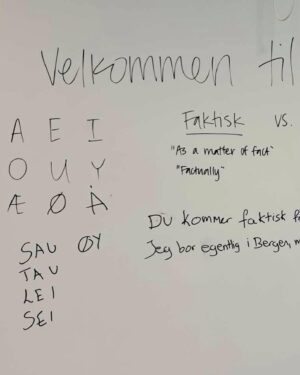 Velkommen til
A E I
O U Y
Æ Ø Å
SAU ØY
TAU
LEI
SEI
Faktisk vs.
"As a matter of fact"
"Factually"
Du kommer faktisk
Jeg bor egentlig i Bergen,